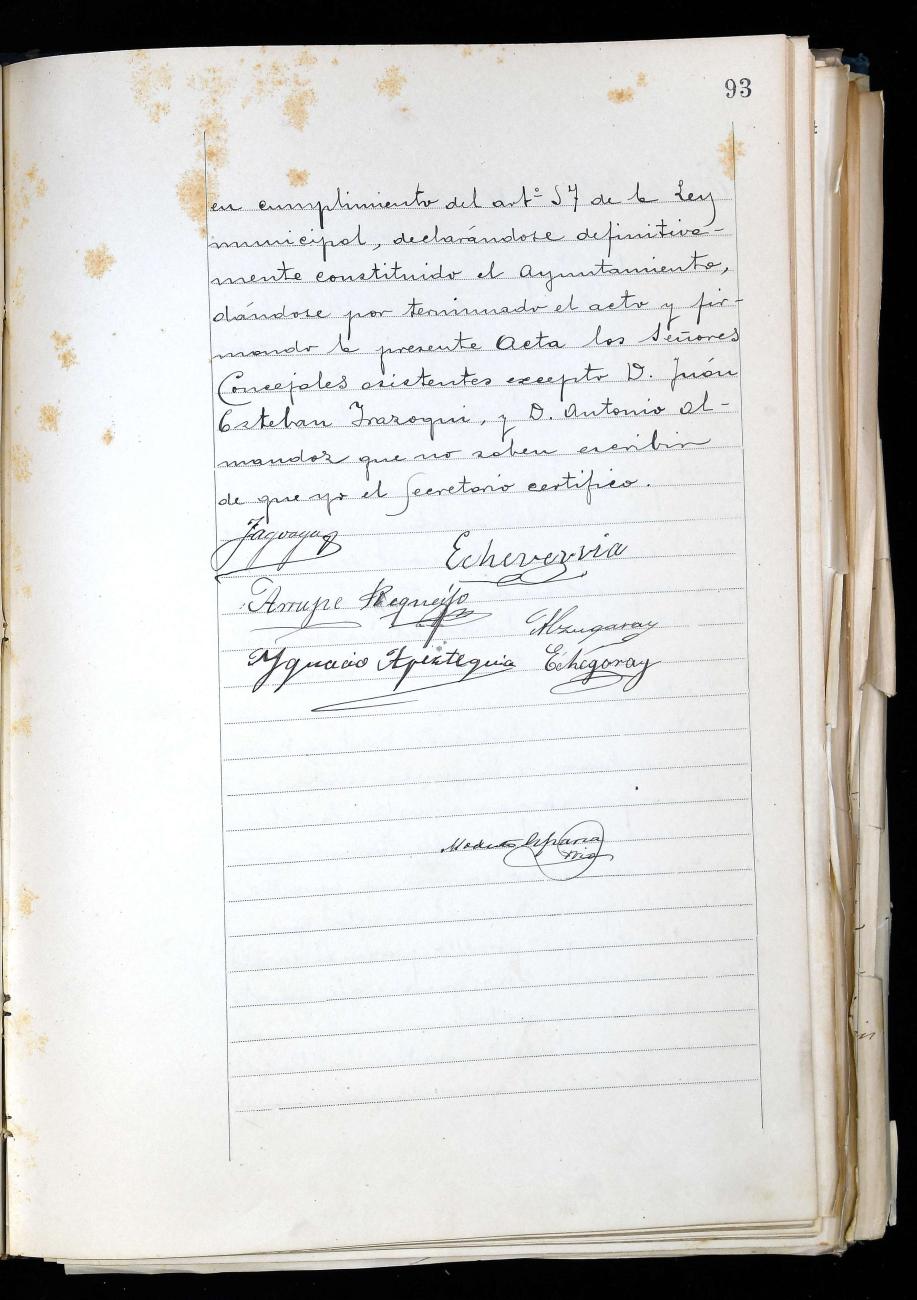 93
en cumplimiento del artº 57 de la Ley
municipal, declarándose definitiva-
mente constituido el Ayuntamiento,
dándose por terminado el acto y fir-
mando la presente Acta los Señores
Concejales asistentes excepto D. Juán
Esteban Irazoqui, y D. Antonio Al-
mandoz que no saben escribir
de que yo el Secretario certifico.
Echeverria
Arrupe Requejo
Alzugaray
Ygnacio Apezteguia Echegaray